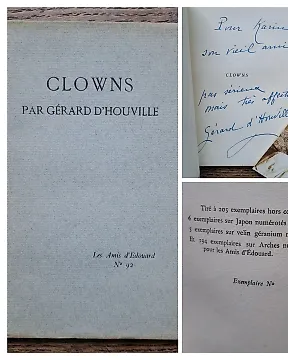 CLOWNS
PAR GÉRARD D'HOUVILLE
Les Amis d'Edouard
N° 92
Pour
son vieil ami
CLOWNS
pas sérieux
mais très
Gérard d'Houville
Tiré à 205 exemplaires hors co
6 exemplaires sur Japon numérotés
5 exemplaires sur velin géranium n
Et 194 exemplaires sur Arches nu
pour les Amis d'Edouard.
Exemplaire N°